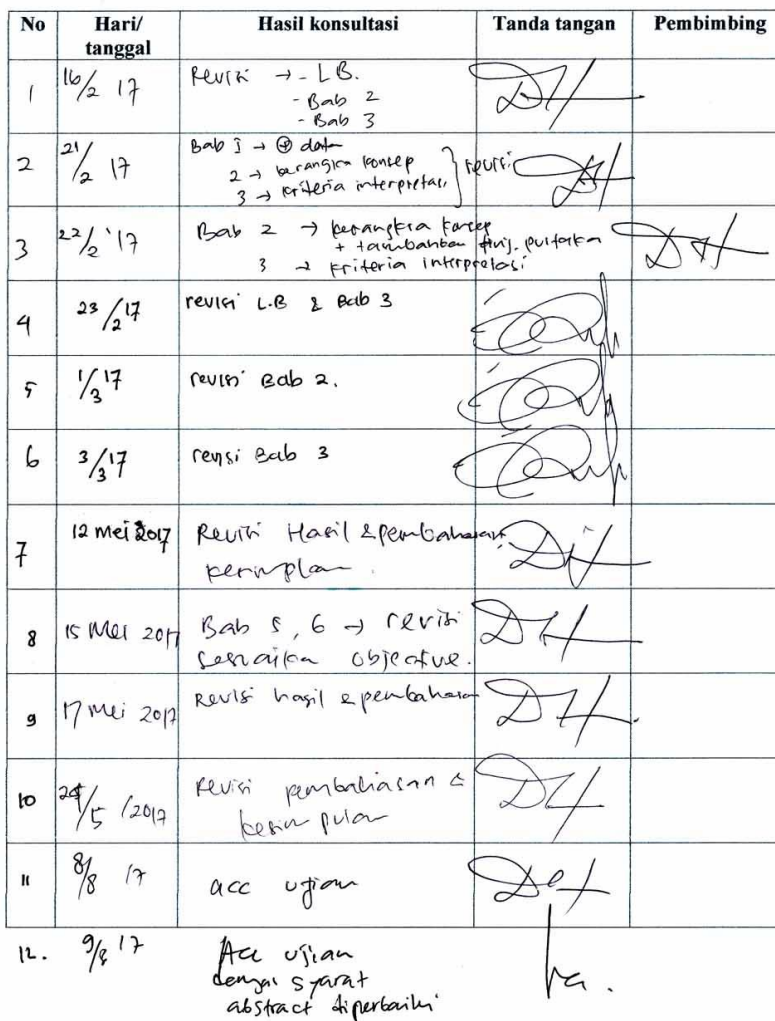 No Hari/ tanggal Hasil konsultasi Tanda tangan Pembimbing
1 16/2 17 Revisi → - L B.
- Bab 2
- Bab 3
2 21/2 17 Bab 1 → ⊕ data
2 → kerangka konsep
3 → kriteria interpretasi } revisi
3 22/2 '17 Bab 2 → kerangka konsep
+ tambahkan tinj. pustaka
3 → kriteria interpretasi
4 23/2 17 revisi L.B & Bab 3
5 1/3 17 revisi Bab 2.
6 3/3 17 revisi Bab 3
7 12 Mei 2017 Revisi Hasil & pembahasan,
kesimpulan
8 15 Mei 2017 Bab 5, 6 → revisi
sesuaikan objective.
9 17 Mei 2017 Revisi hasil & pembahasan
10 24/5 /2017 Revisi pembahasan &
kesimpulan
11 8/8 17 acc ujian
12. 9/8 17 Acc ujian
dengan syarat
abstract diperbaiki